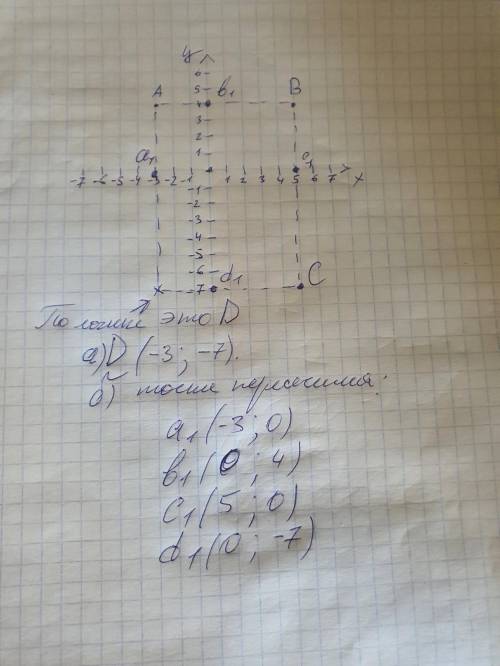 y
6
A 5 b1 B
4
3
2
a1 1 c1
-7 -6 -5 -4 -3 -2 -1 1 2 3 4 5 6 7 x
-1
-2
-3
-4
-5
-6
-7 d1 C
По логике это D
а) D (-3; -7).
б) точки пересечения:
a1 (-3; 0)
b1 (0; 4)
c1 (5; 0)
d1 (0; -7)